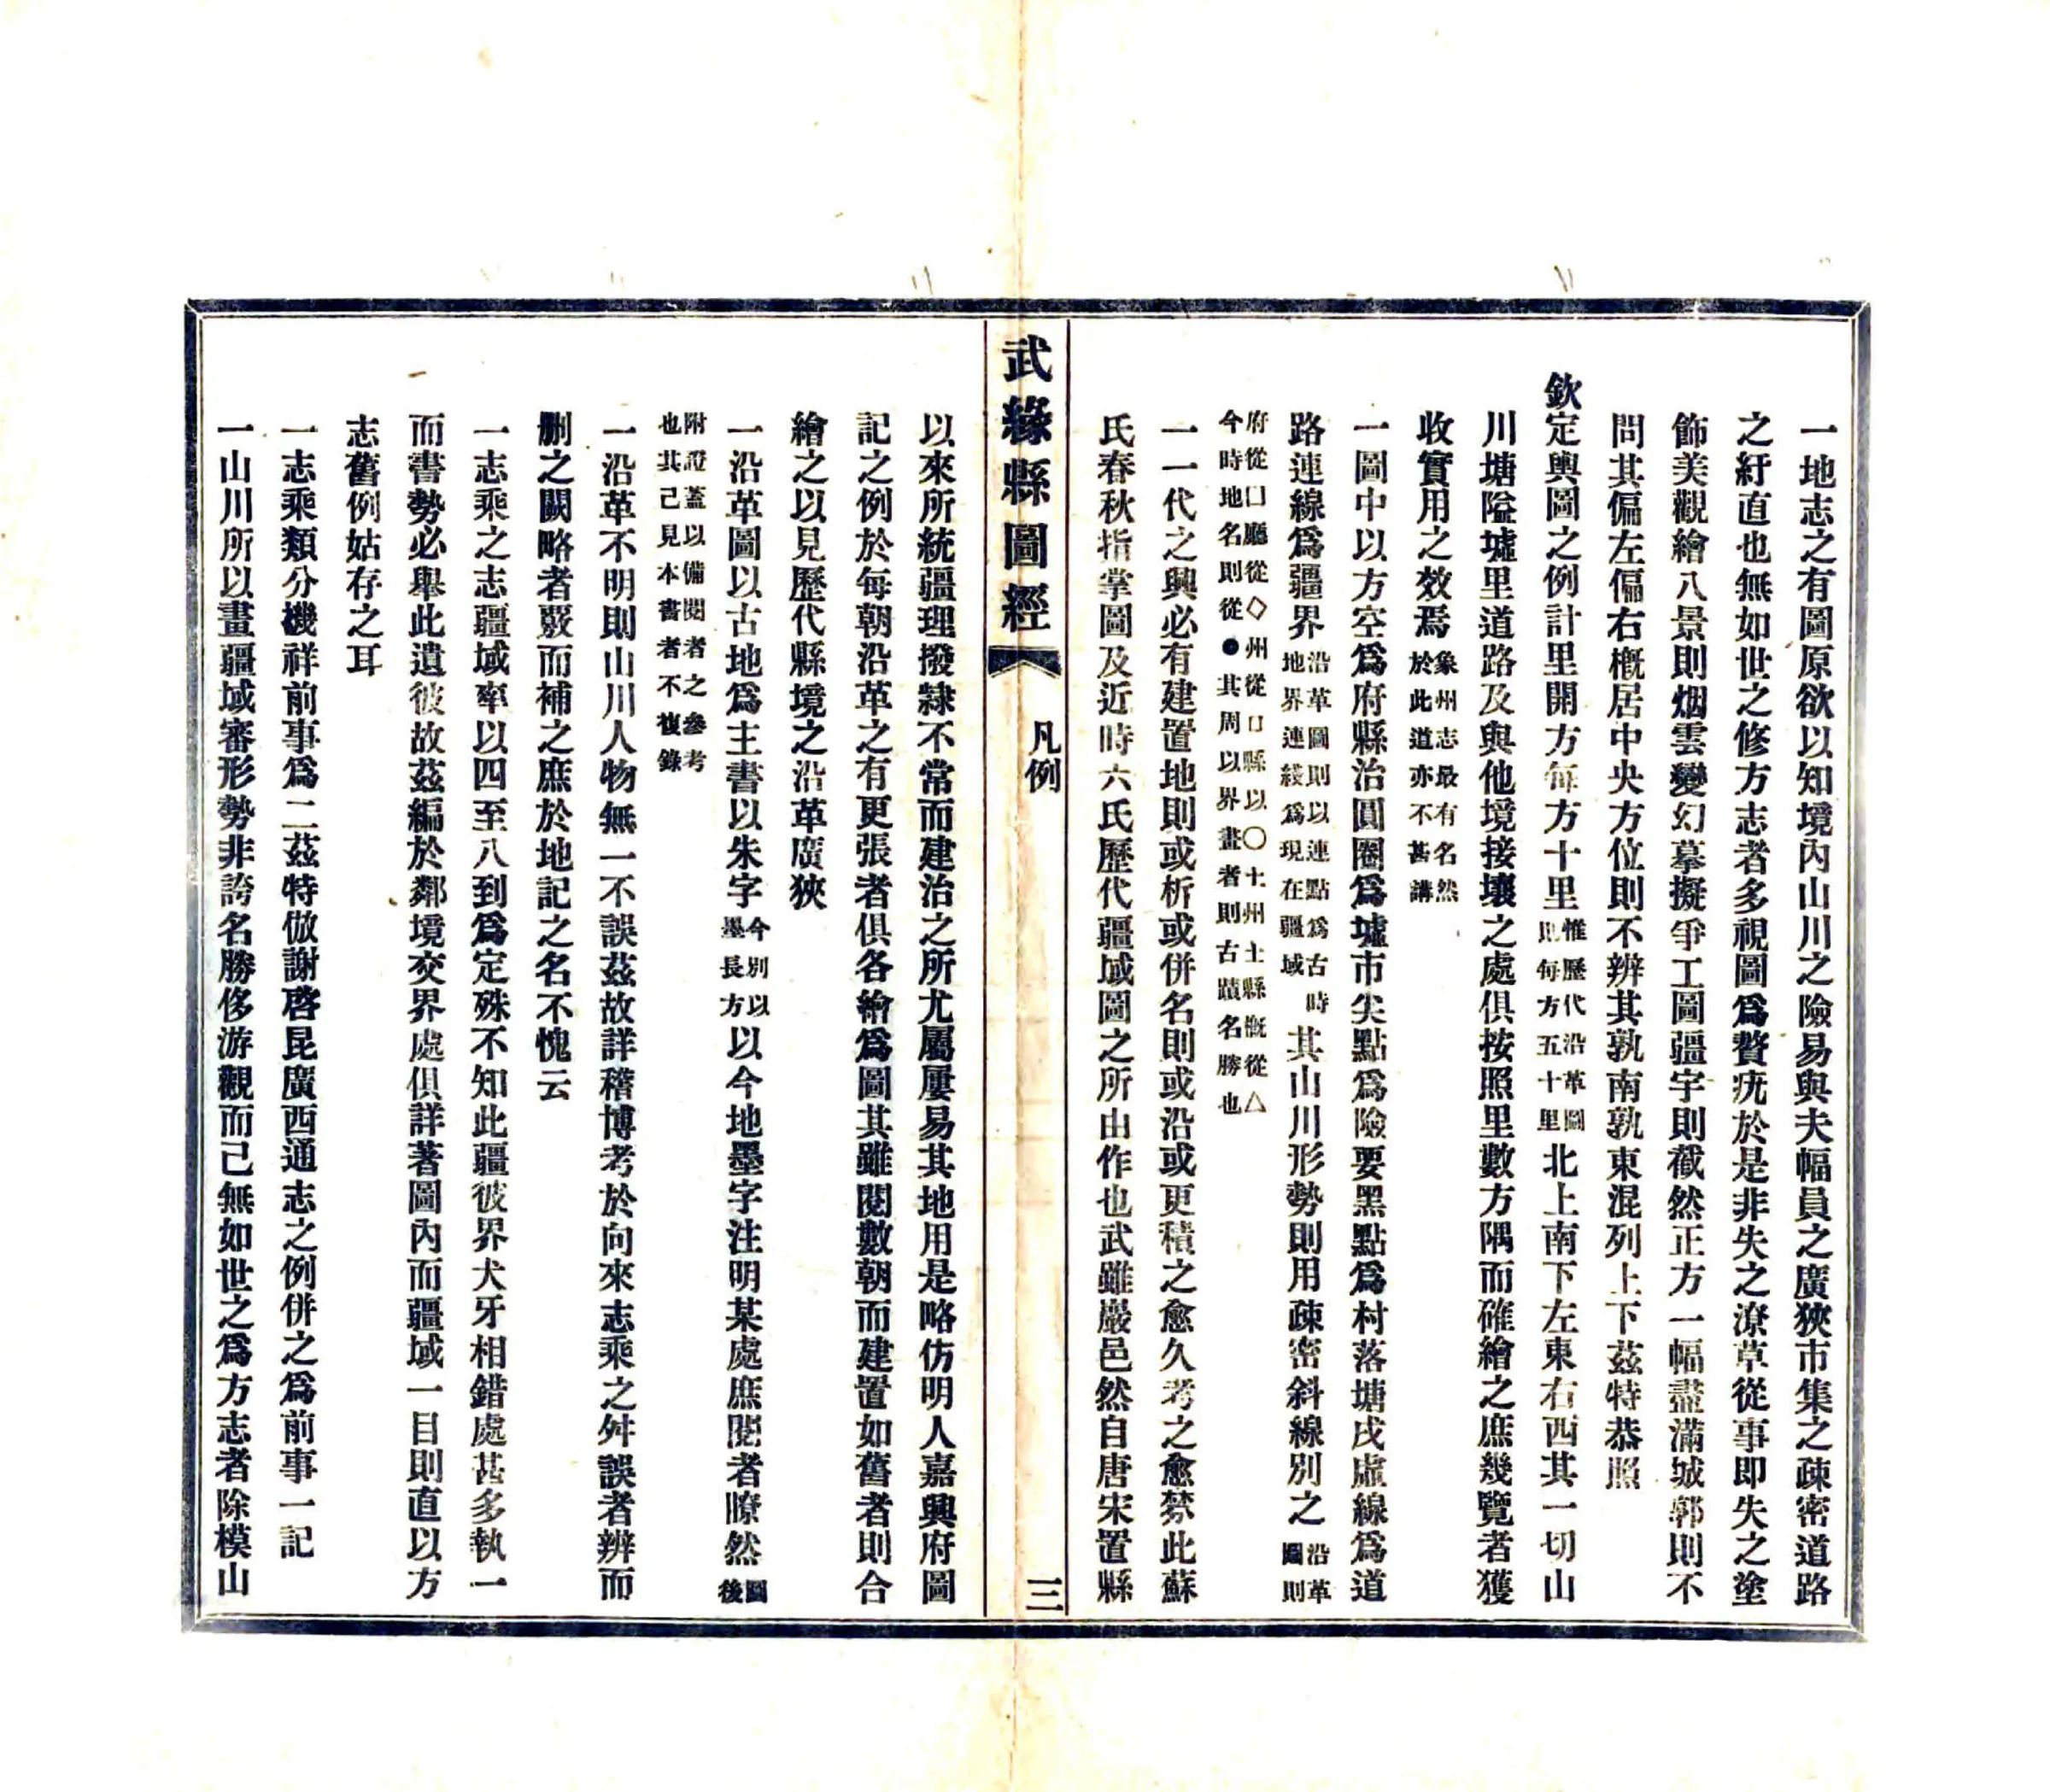 一地志之有圖原欲以知境內山川之險易與夫幅員之廣狹市集之疎密道路
之紆直也無如世之修方志者多視圖爲贅疣於是非失之潦草從事即失之塗
飾美觀繪八景則烟雲變幻摹擬爭工圖疆宇則截然正方一幅盡滿城郭則不
問其偏左偏右槪居中央方位則不辨其孰南孰東混列上下茲特恭照
欽定輿圖之例計里開方每方十里惟歷代沿革圖則每方五十里北上南下左東右西其一切山
川塘隘墟里道路及與他境接壤之處俱按照里數方隅而確繪之庶幾覽者獲
收實用之效焉象州志最有名然於此道亦不甚講
一圖中以方空爲府縣治圓圈爲墟市尖點爲險要黑點爲村落塘戍虛線爲道
路連線爲疆界沿革圖則以連點爲古時地界連綫爲現在疆域其山川形勢則用疎密斜線別之沿革圖則
府從囗廳從◇州從口縣以〇土州土縣槪從△今時地名則從●其周以界畫者則古蹟名勝也
一一代之興必有建置地則或析或併名則或沿或更積之愈久考之愈棼此蘇
氏春秋指掌圖及近時六氏歷代疆域圖之所由作也武雖巖邑然自唐宋置縣
武緣縣圖經
凡例
三
以來所統疆理撥隸不常而建治之所尤屬屢易其地用是略仿明人嘉興府圖
記之例於每朝沿革之有更張者俱各繪爲圖其雖閱數朝而建置如舊者則合
繪之以見歷代縣境之沿革廣狹
一沿革圖以古地爲主書以朱字今別以墨長方以今地墨字注明某處庶閱者瞭然圖後
附證蓋以備閱者之參考也其已見本書者不複錄
一沿革不明則山川人物無一不誤茲故詳稽博考於向來志乘之舛誤者辨而
刪之闕略者覈而補之庶於地記之名不愧云
一志乘之志疆域率以四至八到爲定殊不知此疆彼界犬牙相錯處甚多執一
而書勢必舉此遺彼故茲編於鄰境交界處俱詳著圖內而疆域一目則直以方
志舊例姑存之耳
一志乘類分機祥前事爲二茲特倣謝啓昆廣西通志之例併之爲前事一記
一山川所以畫疆域審形勢非誇名勝侈游觀而已無如世之爲方志者除模山